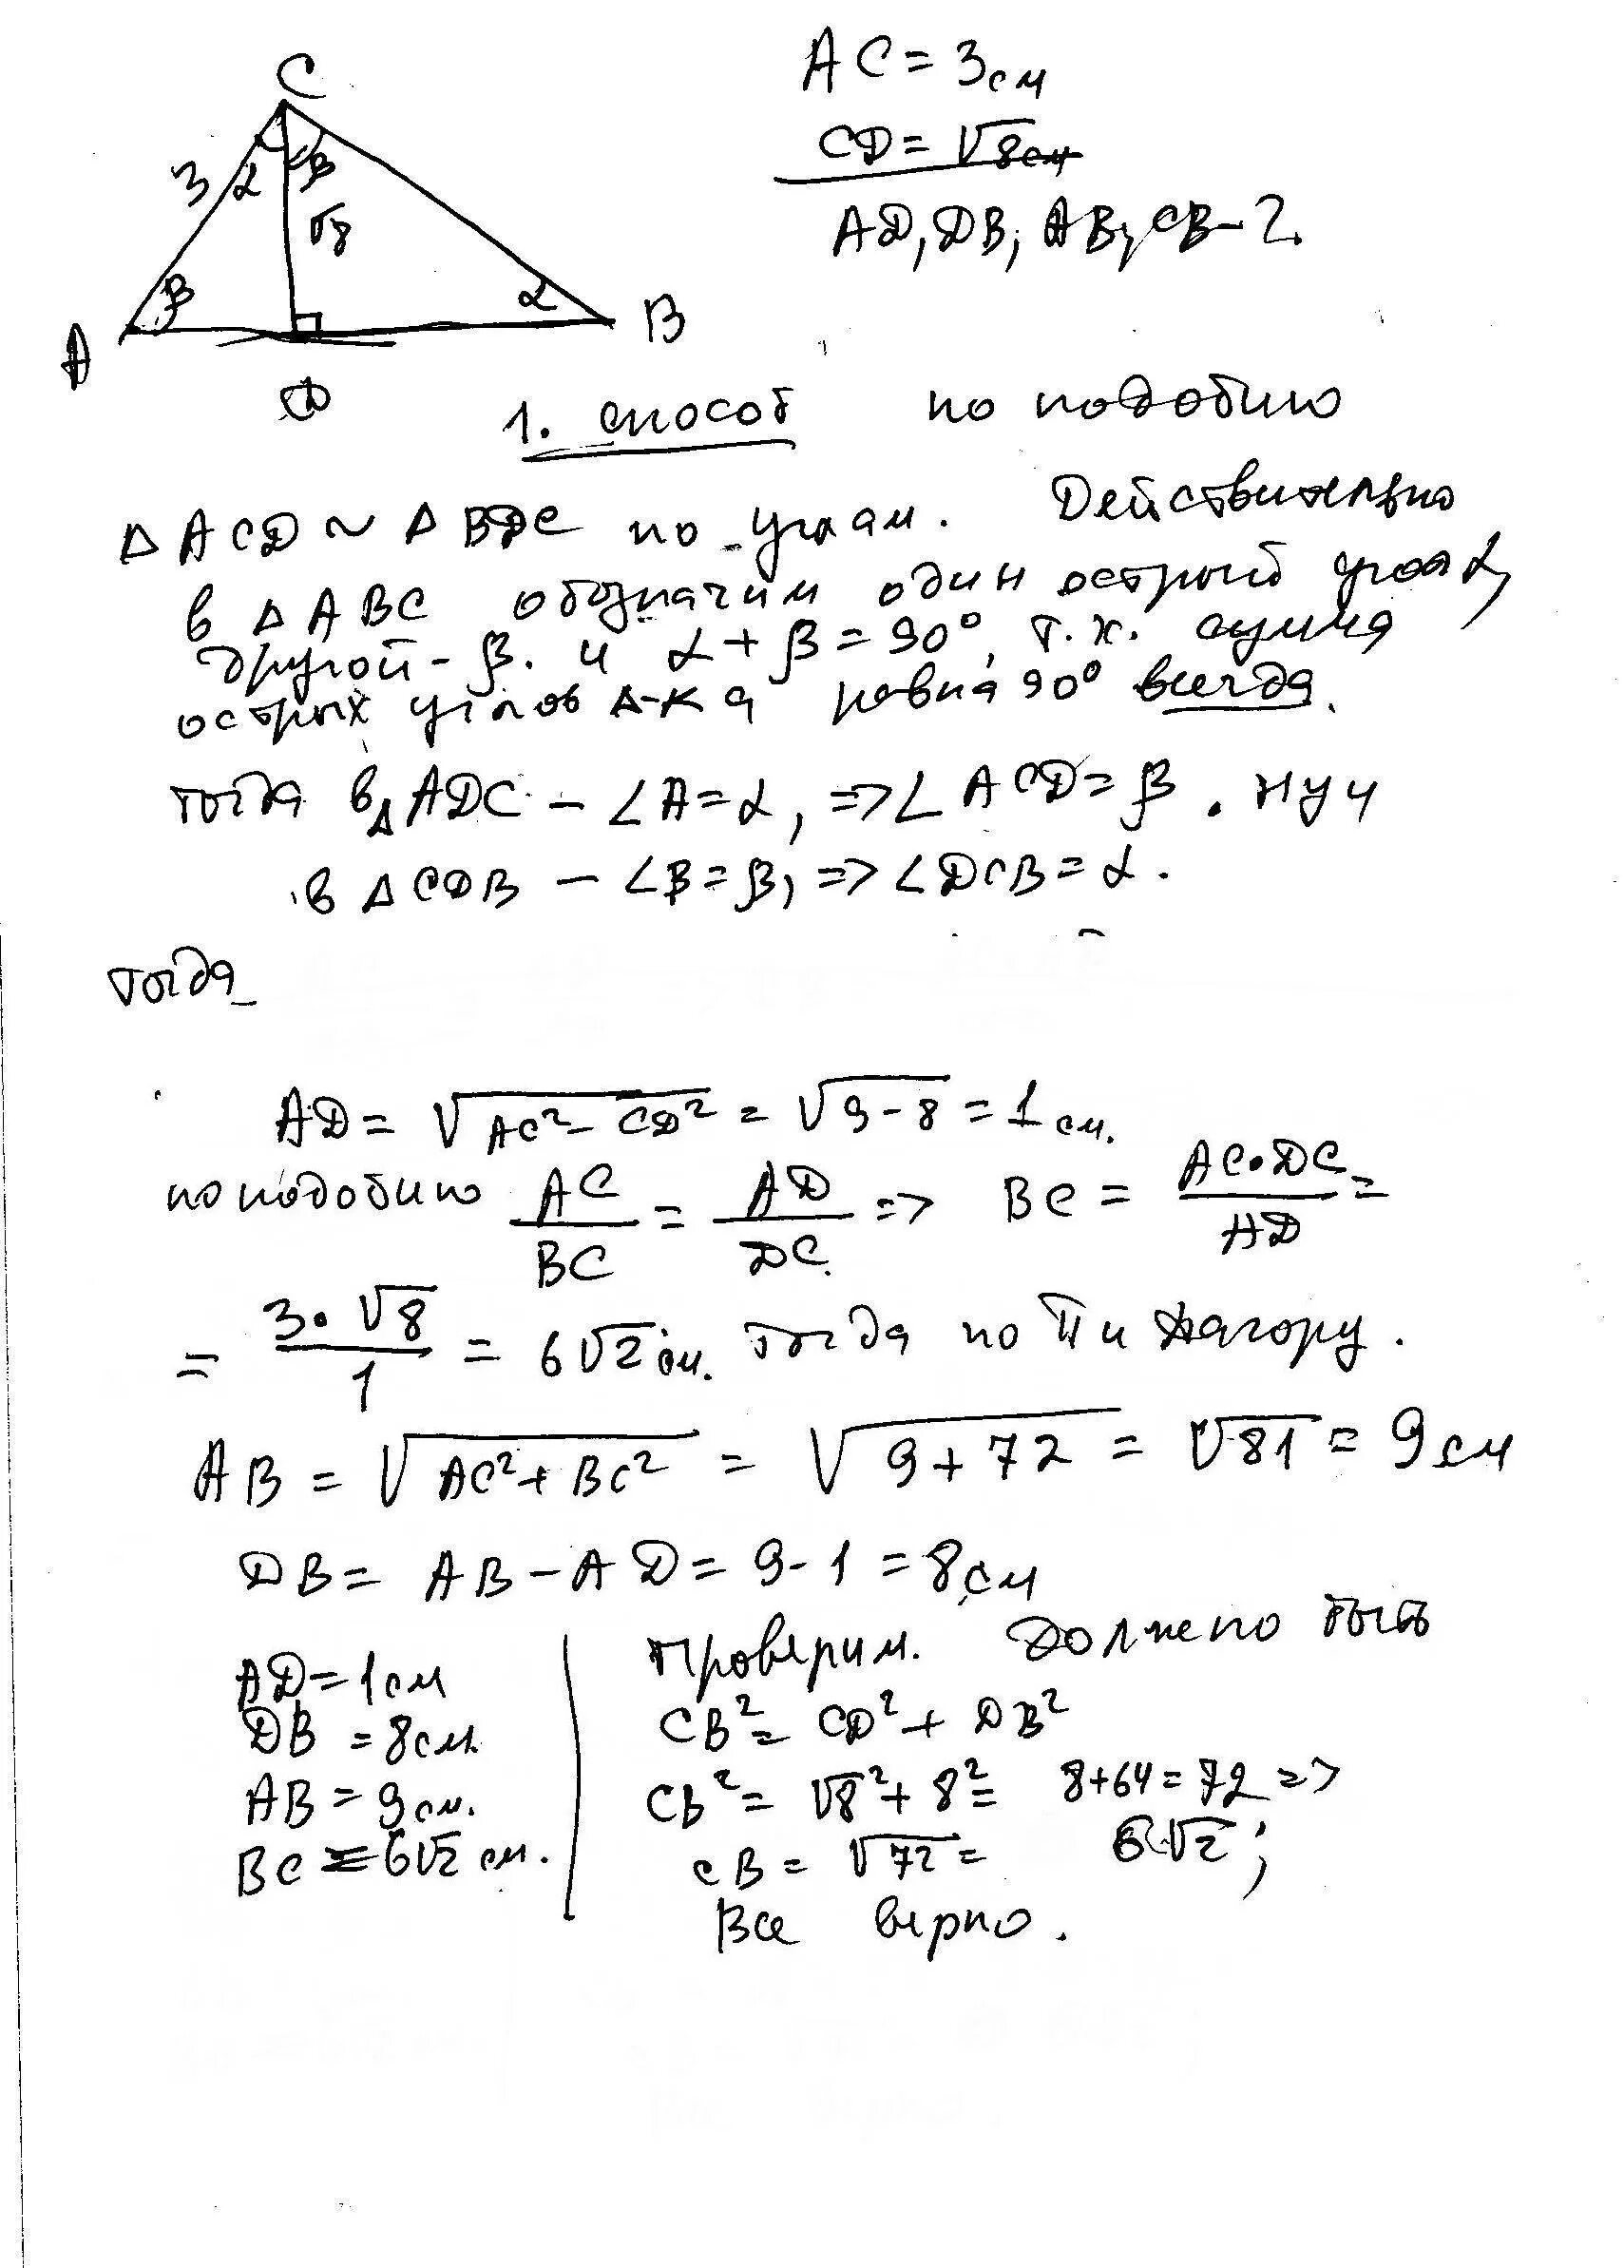 C
AC = 3см
CD = √8см
3 α β
√8
AD, DB, AB, CB - ?
β α
A B
D
1. способ по подобию
Δ ACD ~ Δ BDC по углам. Действительно
в Δ ABC обозначим один острый угол α,
другой - β. и α + β = 90°, т.к. сумма
острых углов Δ-ка равна 90° всегда.
тогда в Δ ADC - ∠A = α, => ∠ACD = β. ну и
в Δ CDB - ∠B = β, => ∠DCB = α.
тогда
AD = √AC² - CD² = √9-8 = 1см.
по подобию AC/BC = AD/DC => BC = AC•DC/AD =
= 3•√8/1 = 6√2 см. тогда по Пифагору.
AB = √AC² + BC² = √9+72 = √81 = 9см
DB = AB - AD = 9-1 = 8см
AD = 1см
DB = 8см.
AB = 9см.
BC = 6√2 см.
Проверим. Должно быть
CB² = CD² + DB²
CB² = √8² + 8² = 8+64 = 72 =>
CB = √72 = 6√2;
Все верно.